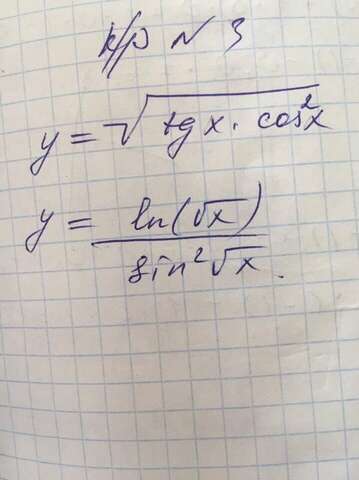 к/р № 3
y = √(tg x · cos²x)
y = ln(√x) / sin²√x.